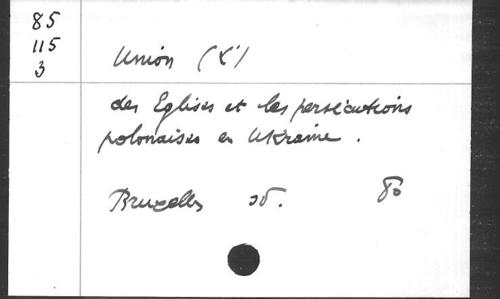 85
115
3
Union (L')
des Eglises et les persécutions
polonaises en Ukraine.
Bruxelles sd. 8o